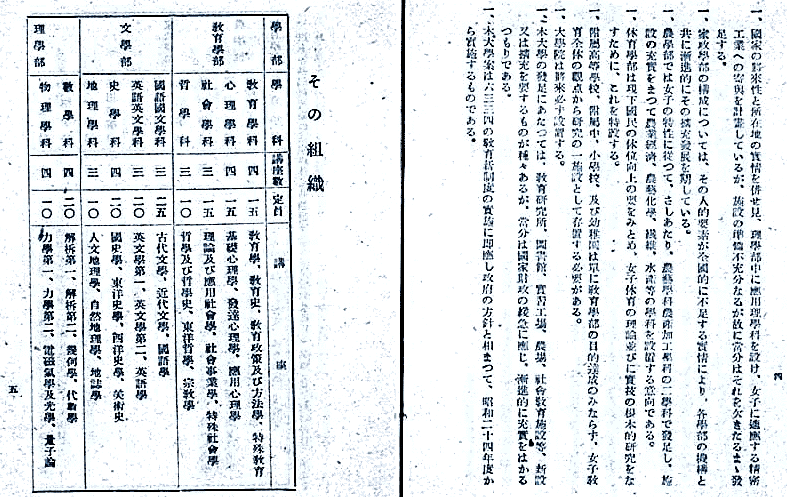 一、國家の將來性と所在地の實情を併せ見、理學部中に應用理學科を設け、女子に適應する精密
工業への寄與を計畫しているが、施設の準備不充分なるが故に當分はそれを欠きたるまゝ發
足する。
一、家政學部の構成については、その人的要素が全國的に不足する實情により、各學部の機構と
共に漸進的にその擴充發展を期している。
一、農學部では女子の特性に從つて、さしあたり、農藝學科農産加工學科の二學科で發足し、施
設の充實をまつて農業經濟、農藝化學、蠶纖、水産等の學科を設置する意向である。
一、体育學部は現下國民の体位向上の要をみとめ、女子体育の理論並びに實技の根本的研究をな
すために、これを特設する。
一、附屬高等學校、附屬中、小學校、及び幼稚園は單に教育學部の目的達成のみならず、女子教
育全体の觀点から研究の一施設として存置する必要がある。
一、大學院は將來必ず設置する。
一、本大學の發足にあたつては、教育研究所、圖書館、實習工場、農場、社會教育施設等、新設
又は擴充を要するものが種々あるが、當分は國家財政の緩急に應じ、漸進的に充實をはかる
つもりである。
一、本大學案は六三三四の教育新制度の實施に即應し政府の方針と相まつて、昭和二十四年度か
ら實施するものである。
四
その組織
學部 學科 講座數 定員 講座
教育學部 教育學科 四 一五 教育學、教育史、教育政策及び方法學、特殊教育
心理學科 四 一五 基礎心理學、發達心理學、應用心理學
社會學科 四 一五 理論及び應用社會學、社會事業學、特殊社會學
哲學科 三 一〇 哲學及び哲學史、東洋哲學、宗教學
文學部 國語國文學科 三 二五 古代文學、近代文學、國語學
英語英文學科 三 二〇 英文學第一、英文學第二、英語學
史學科 四 二〇 國史學、東洋史學、西洋史學、美術史
地理學科 三 一〇 人文地理學、自然地理學、地誌學
理學部 數學科 四 二〇 解析第一、解析第二、幾何學、代數學
物理學科 四 一〇 力學第一、力學第二、電磁氣學及光學、量子論
五